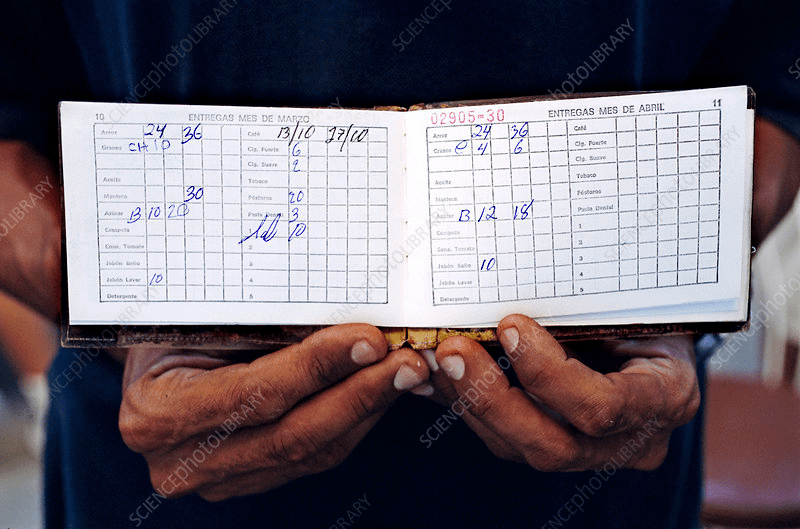 10 ENTREGAS MES DE MARZO
Arroz 24 36 Café 13/10 27/10
Granos CH 10 Cig. Fuerte 6
Cig. Suave 2
Aceite Tabaco
Manteca 30 Fósforos 20
Azúcar B 10 20 Pasta Dental 3
Compota 1 10
Cons. Tomate 2
Jabón Baño 3
Jabón Lavar 10 4
Detergente 5
02905-30 ENTREGAS MES DE ABRIL 11
Arroz 24 36 Café
Granos C 4 6 Cig. Fuerte
Cig. Suave
Aceite Tabaco
Manteca Fósforos
Azúcar B 12 18 Pasta Dental
Compota 1
Cons. Tomate 2
Jabón Baño 10 3
Jabón Lavar 4
Detergente 5
SCIENCEphotoLIBRARY